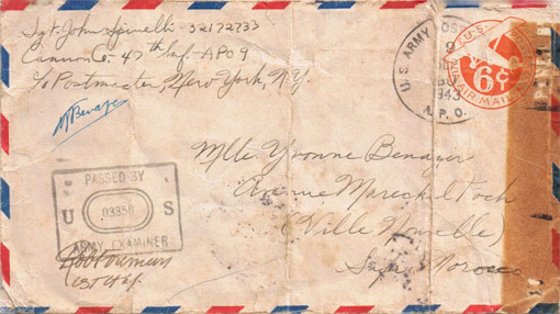 Sgt. John Spinelli - 32172733
Cannon Co. 47th Inf. APO 9
c/o Postmaster, New York, N.Y.
U.S. ARMY POSTAL
1943
A.P.O.
U.S.
6¢
AIR MAIL
Mlle. Yvonne Benazer
Avenue Marechal Foch
(Ville Nouvelle)
Morocco
PASSED BY
U S
ARMY EXAMINER
1st Lt.